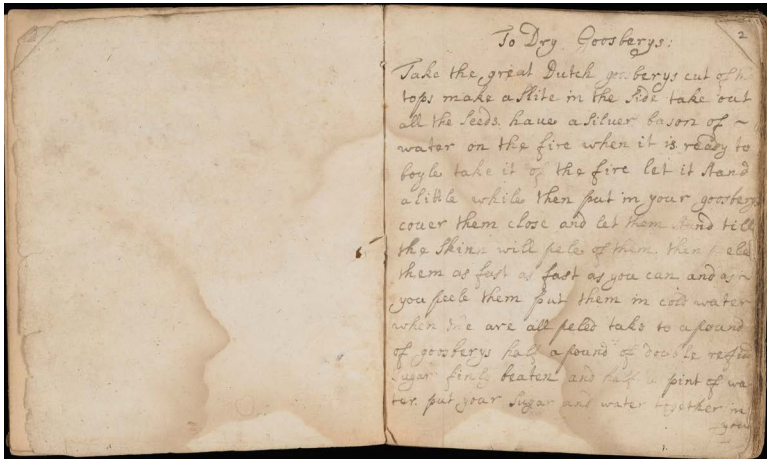 2
To Dry Goosberys:
Take the great Dutch goosberys cut of
tops make a Slite in the Side take out
all the Seeds. have a Silver bason of ~
water on the fire when it is ready to
boyle take it of the fire let it Stand
a little while then put in your goosbery
couer them close and let them Stand till
the Skinn will pele of them. then pele
them as fast as fast as you can and as
you peele them put them in cold water
when are all peled take to a pound
of goosberys half a pound of double refin
Sugar finly beaten and half a pint of wa
ter. put your Sugar and water together in
your